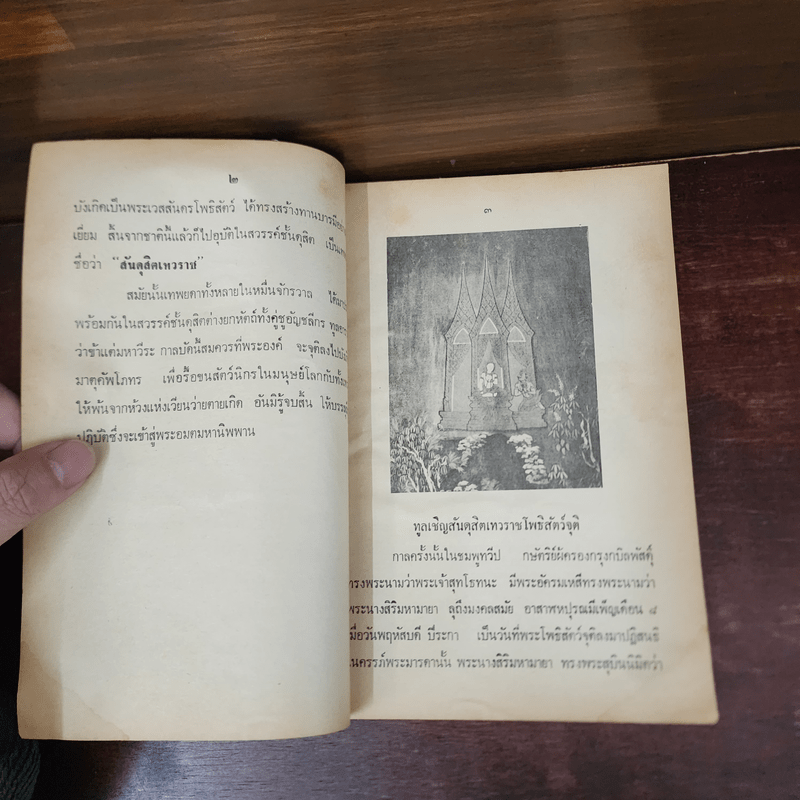 ๒
บังเกิดเป็นพระเวสสันดรโพธิสัตว์ ได้ทรงสร้างทานบารมี
เยี่ยม สิ้นจากชาตินี้แล้วก็ไปอุบัติในสวรรค์ชั้นดุสิต เป็น
ชื่อว่า "สันดุสิตเทวราช"
สมัยนั้นเทพยดาทั้งหลายในหมื่นจักรวาล
พร้อมกันในสวรรค์ชั้นดุสิตต่างยกหัตถ์ทั้งคู่ชูอัญชลีกร
ว่าข้าแต่มหาวีระ กาลบัดนี้สมควรที่พระองค์ จะจุติลงไป
มาตุคัพโภทร เพื่อรื้อขนสัตว์นิกรในมนุษย์โลกกับทั้ง
ให้พ้นจากห้วงแห่งเวียนว่ายตายเกิด อันมิรู้จบสิ้น
ปฏิบัติซึ่งจะเข้าสู่พระอมตมหานิพพาน
๓
ทูลเชิญสันดุสิตเทวราชโพธิสัตว์จุติ
กาลครั้งนั้นในชมพูทวีป กษัตริย์ผู้ครองกรุงกบิลพัสดุ์
ทรงพระนามว่าพระเจ้าสุทโธทนะ มีพระอัครมเหสีทรงพระนามว่า
พระนางสิริมหามายา ลุถึงมงคลสมัย อาสาฬหปุรณมีเพ็ญเดือน ๘
เมื่อวันพฤหัสบดี ปีระกา เป็นวันที่พระโพธิสัตว์จุติลงมาปฏิสนธิ
ในครรภ์พระมารดานั้น พระนางสิริมหามายา ทรงพระสุบินนิมิตว่า